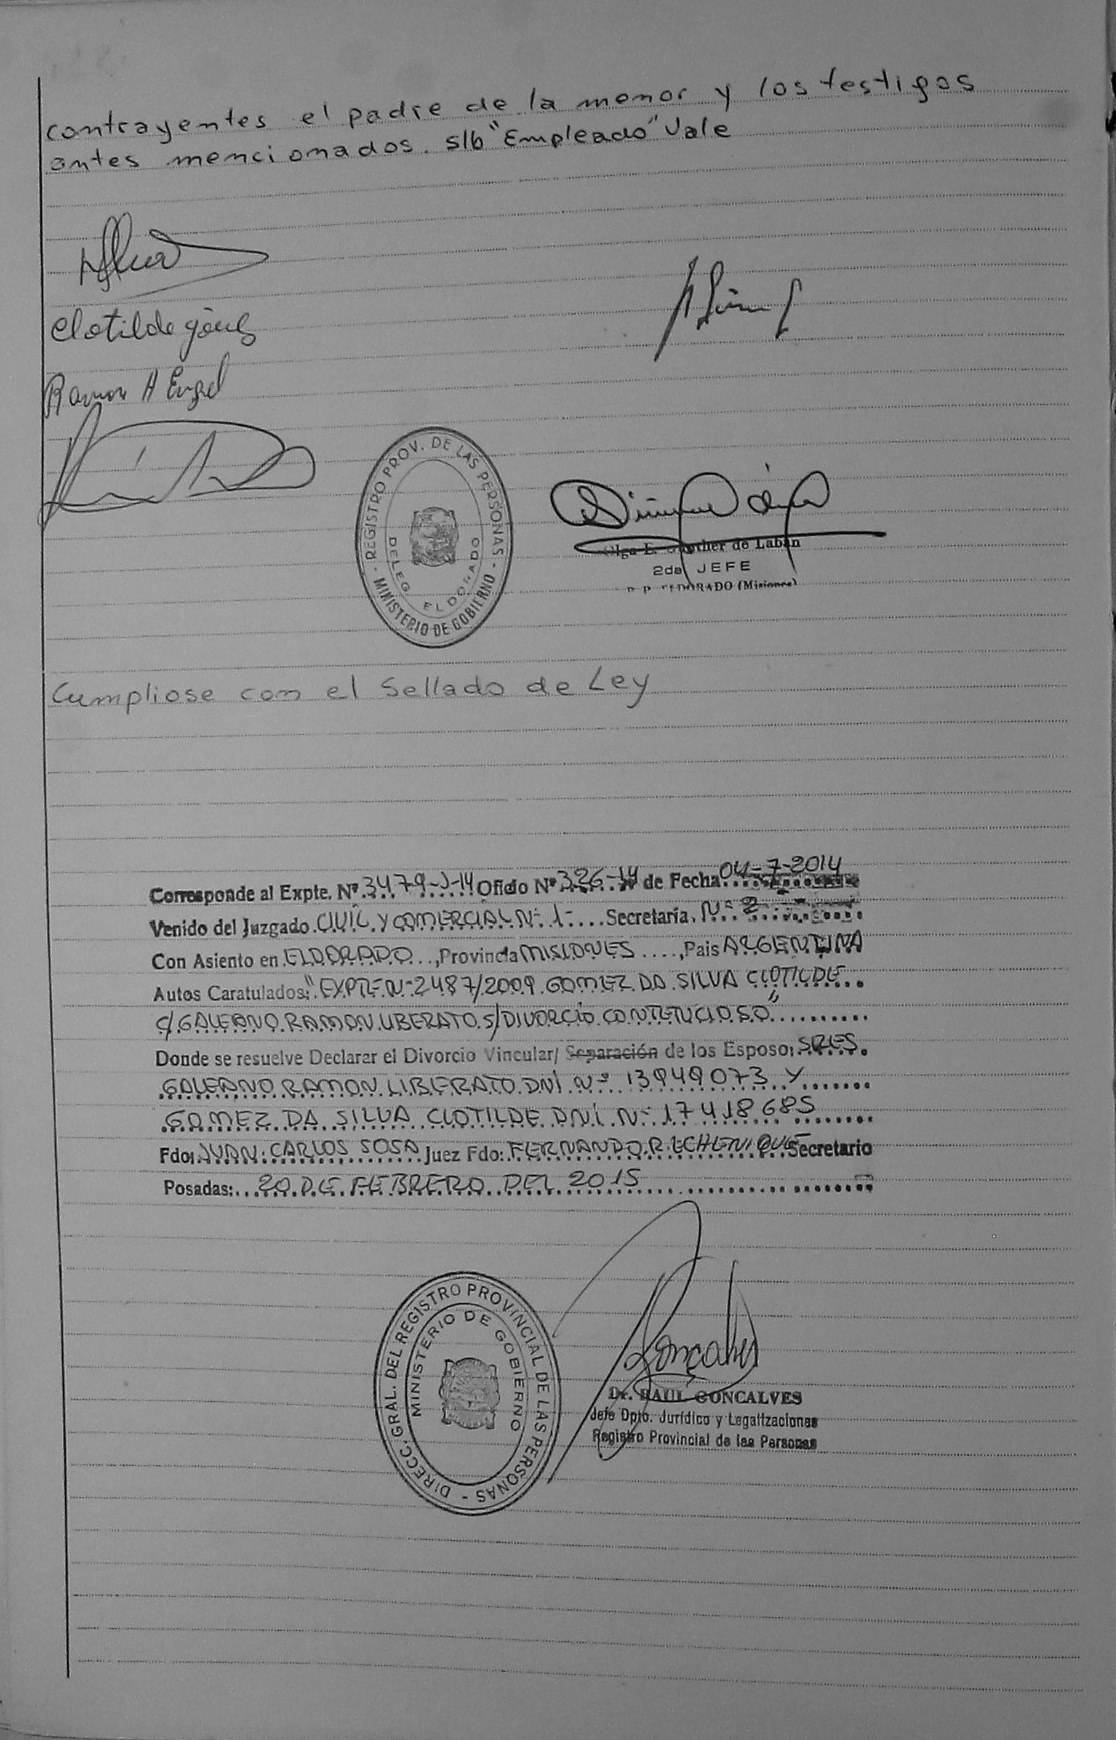 contrayentes el padre de la menor y los testigos
antes mencionados. s/b "Empleado" Vale
Clotilde
Ramon A Engel
REGISTRO PROV. DE LAS PERSONAS - MINISTERIO DE GOBIERNO -
DELEG. ELDORADO
de Laban
2da JEFE
ELDORADO (Misiones)
Cumpliose con el Sellado de Ley
Corresponde al Expte. Nº 3479-J-14 Oficio Nº 326-14 de Fecha 04-7-2014
Venido del Juzgado CIVIL Y COMERCIAL Nº 1- Secretaría. Nº 2
Con Asiento en ELDORADO, Provincia MISIONES, Pais ARGENTINA
Autos Caratulados: "EXPTE Nº 2487/2009 GOMEZ DA SILVA CLOTILDE
c/ GALEANO RAMON LIBERATO s/ DIVORCIO CONTENCIOSO"
Donde se resuelve Declarar el Divorcio Vincular/ Separación de los Esposo: SRES.
GALEANO RAMON LIBERATO DNI Nº 13949073 Y
GOMEZ DA SILVA CLOTILDE DNI Nº 17418685
Fdo: JUAN CARLOS SOSA Juez Fdo: FERNANDO R. ECHENIQUE Secretario
Posadas: 20 DE FEBRERO DEL 2015
DIRECC. GRAL. DEL REGISTRO PROVINCIAL DE LAS PERSONAS -
MINISTERIO DE GOBIERNO
Gonçalves
Dr. RAUL GONCALVES
Jefe Dpto. Jurídico y Legalizaciones
Registro Provincial de las Personas